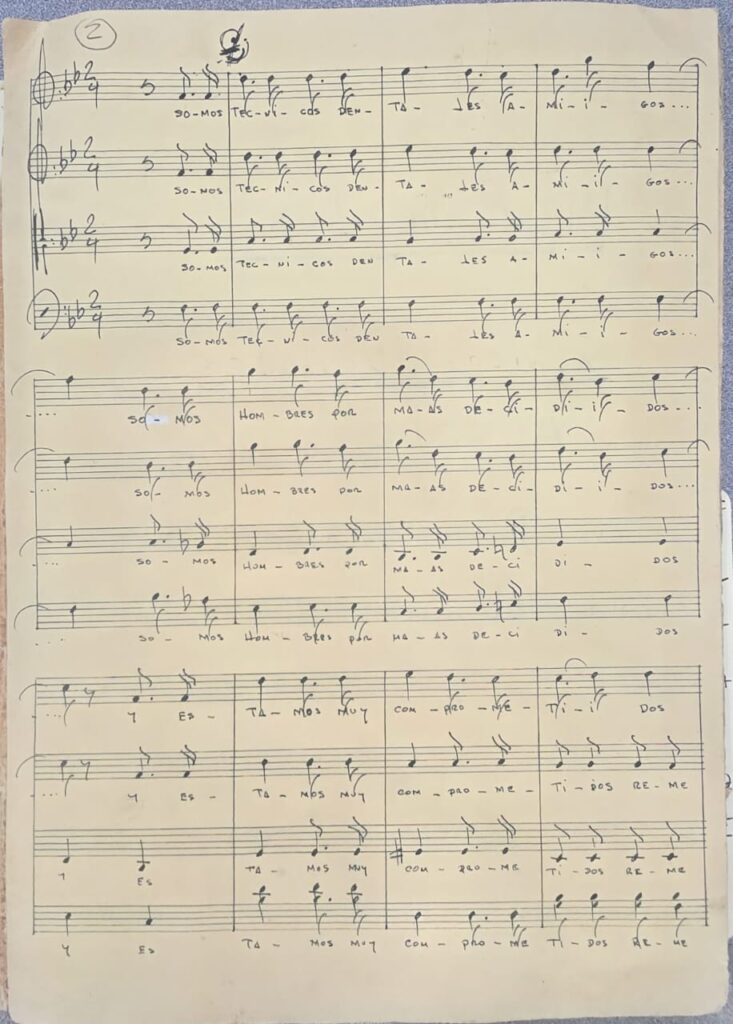 2
2 4 SO-MOS TEC-NI-COS DEN- TA- LES A- MI-I- GOS...
2 4 SO-MOS TEC-NI-COS DEN- TA- LES A- MI-I- GOS...
2 4 SO-MOS TEC-NI-COS DEN TA- LES A- MI-I- GOS...
2 4 SO-MOS TEC-NI-COS DEN TA- LES A- MI-I- GOS...
... SO-MOS HOM-BRES POR MA-AS DE-CI- DI-I- DOS...
... SO-MOS HOM-BRES POR MA-AS DE-CI- DI-I- DOS...
SO-MOS HOM-BRES POR MA-AS DE-CI DI- DOS
SO-MOS HOM-BRES POR MA-AS DE-CI DI- DOS
... Y ES- TA-MOS MUY COM-PRO-ME- TI-I DOS
... Y ES- TA-MOS MUY COM-PRO-ME- TI-DOS RE-ME
Y ES TA-MOS MUY COM-PRO-ME TI-DOS RE-ME
Y ES TA-MOS MUY COM-PRO-ME TI-DOS RE-ME